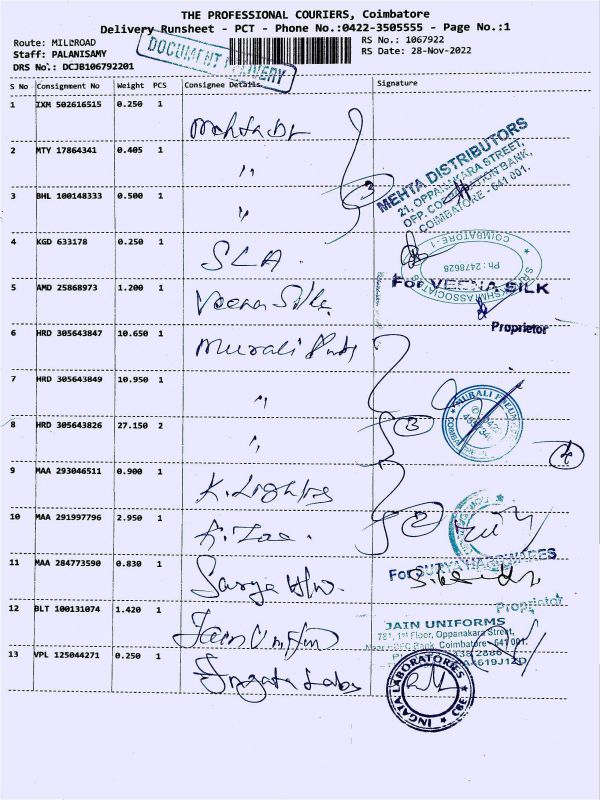 THE PROFESSIONAL COURIERS, Coimbatore
Delivery Runsheet - PCT - Phone No.:0422-3505555 - Page No.:1
Route: MILLROAD
RS No.: 1067922
Staff: PALANISAMY
RS Date: 28-Nov-2022
DRS No.: DCJB106792201
DOCUMENT DELIVERY
S No Consignment No Weight PCS Consignee Details Signature
1 IXM 502616515 0.250 1 Mehta Dr
2 MTY 17864341 0.405 1 "
3 BHL 100148333 0.500 1 "
3
MEHTA DISTRIBUTORS
21, OPPANAKARA STREET,
OPP. CORPORATION BANK,
COIMBATORE - 641 001.
4 KGD 633178 0.250 1 SLA.
COIMBATORE-1
Ph : 2478628
5 AMD 25868973 1.200 1 Veena Silk
For VEENA SILK
Proprietor
6 HRD 305643847 10.650 1 Murali
7 HRD 305643849 10.950 1 "
8 HRD 305643826 27.150 2 "
3
MURALI
4
9 MAA 293046511 0.900 1 K. Lights
10 MAA 291997796 2.950 1
2
11 MAA 284773590 0.830 1 Surya H/w.
For SURYA HARDWARES
Proprietor
12 BLT 100131074 1.420 1 Jain Uniform
JAIN UNIFORMS
781, 1st Floor, Oppanakara Street,
Bank, Coimbatore - 641 001.
13 VPL 125044271 0.250 1 Ingata Labs
INGATA LABORATORIES
CBE